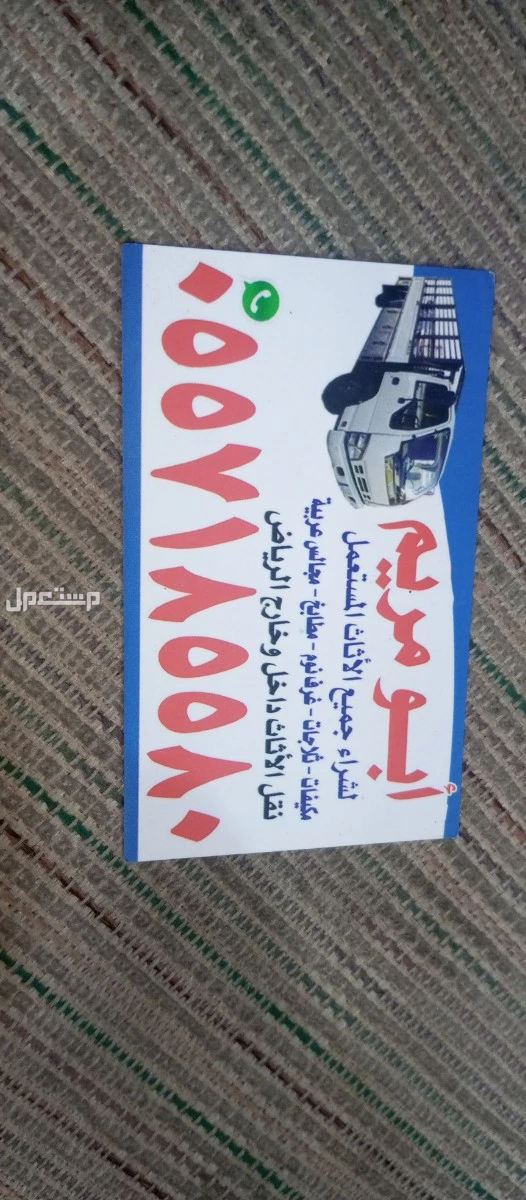 أبو مريم
لشراء جميع الأثاث المستعمل
مكيفات - ثلاجات - غرف نوم - مطابخ - مجالس عربية
نقل الأثاث داخل وخارج الرياض
٠٥٥٧١٨٥٥٨٠
مستعمل